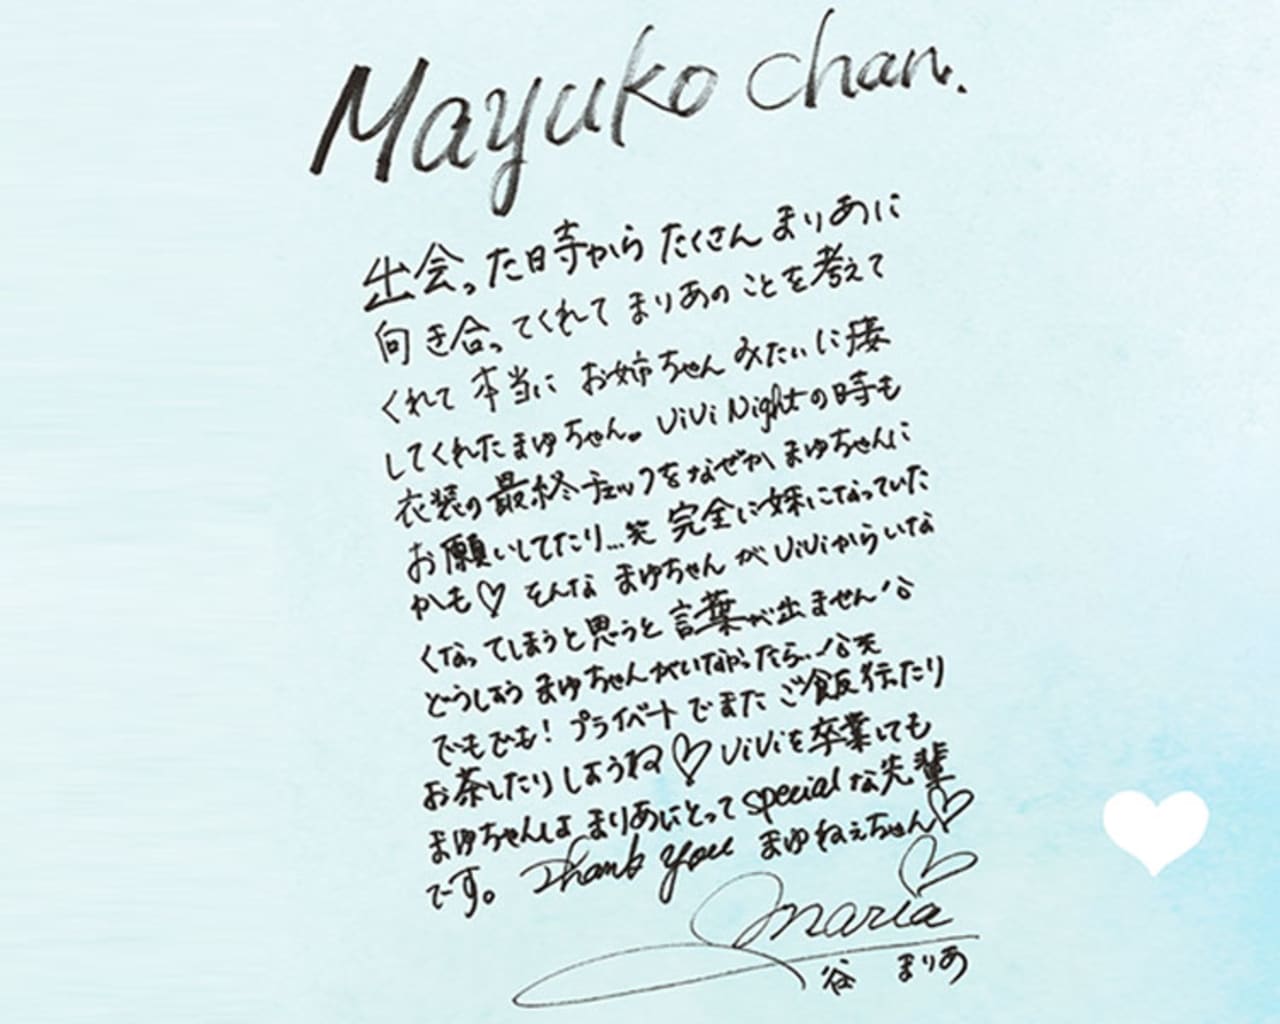 Mayuko chan.
出会った時から たくさん まりあに
向き合ってくれて まりあの ことを考えて
くれて 本当に お姉ちゃん みたいに接
してくれた まゆちゃん。 ViVi Nightの時も
衣装の最終チェックをなぜか まゆちゃんに
お願いしてたり...笑 完全に妹になっていた
かも♡ そんな まゆちゃん が ViViからいな
くなってしまうと思うと 言葉が出ません
どうしよう まゆちゃんがいなかったら..笑
でもでも! プライベートでまた ご飯行ったり
お茶したり しようね♡ ViViを卒業しても
まゆちゃんは まりあにとって specialな先輩
です。 Thank you まゆねぇちゃん♡
maria♡
谷 まりあ